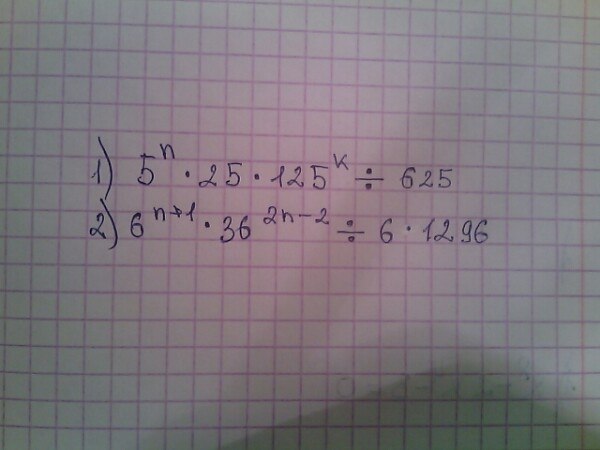 1) 5ⁿ · 25 · 125ᵏ ÷ 625
2) 6ⁿ⁺¹ · 36²ⁿ⁻² ÷ 6 · 1296